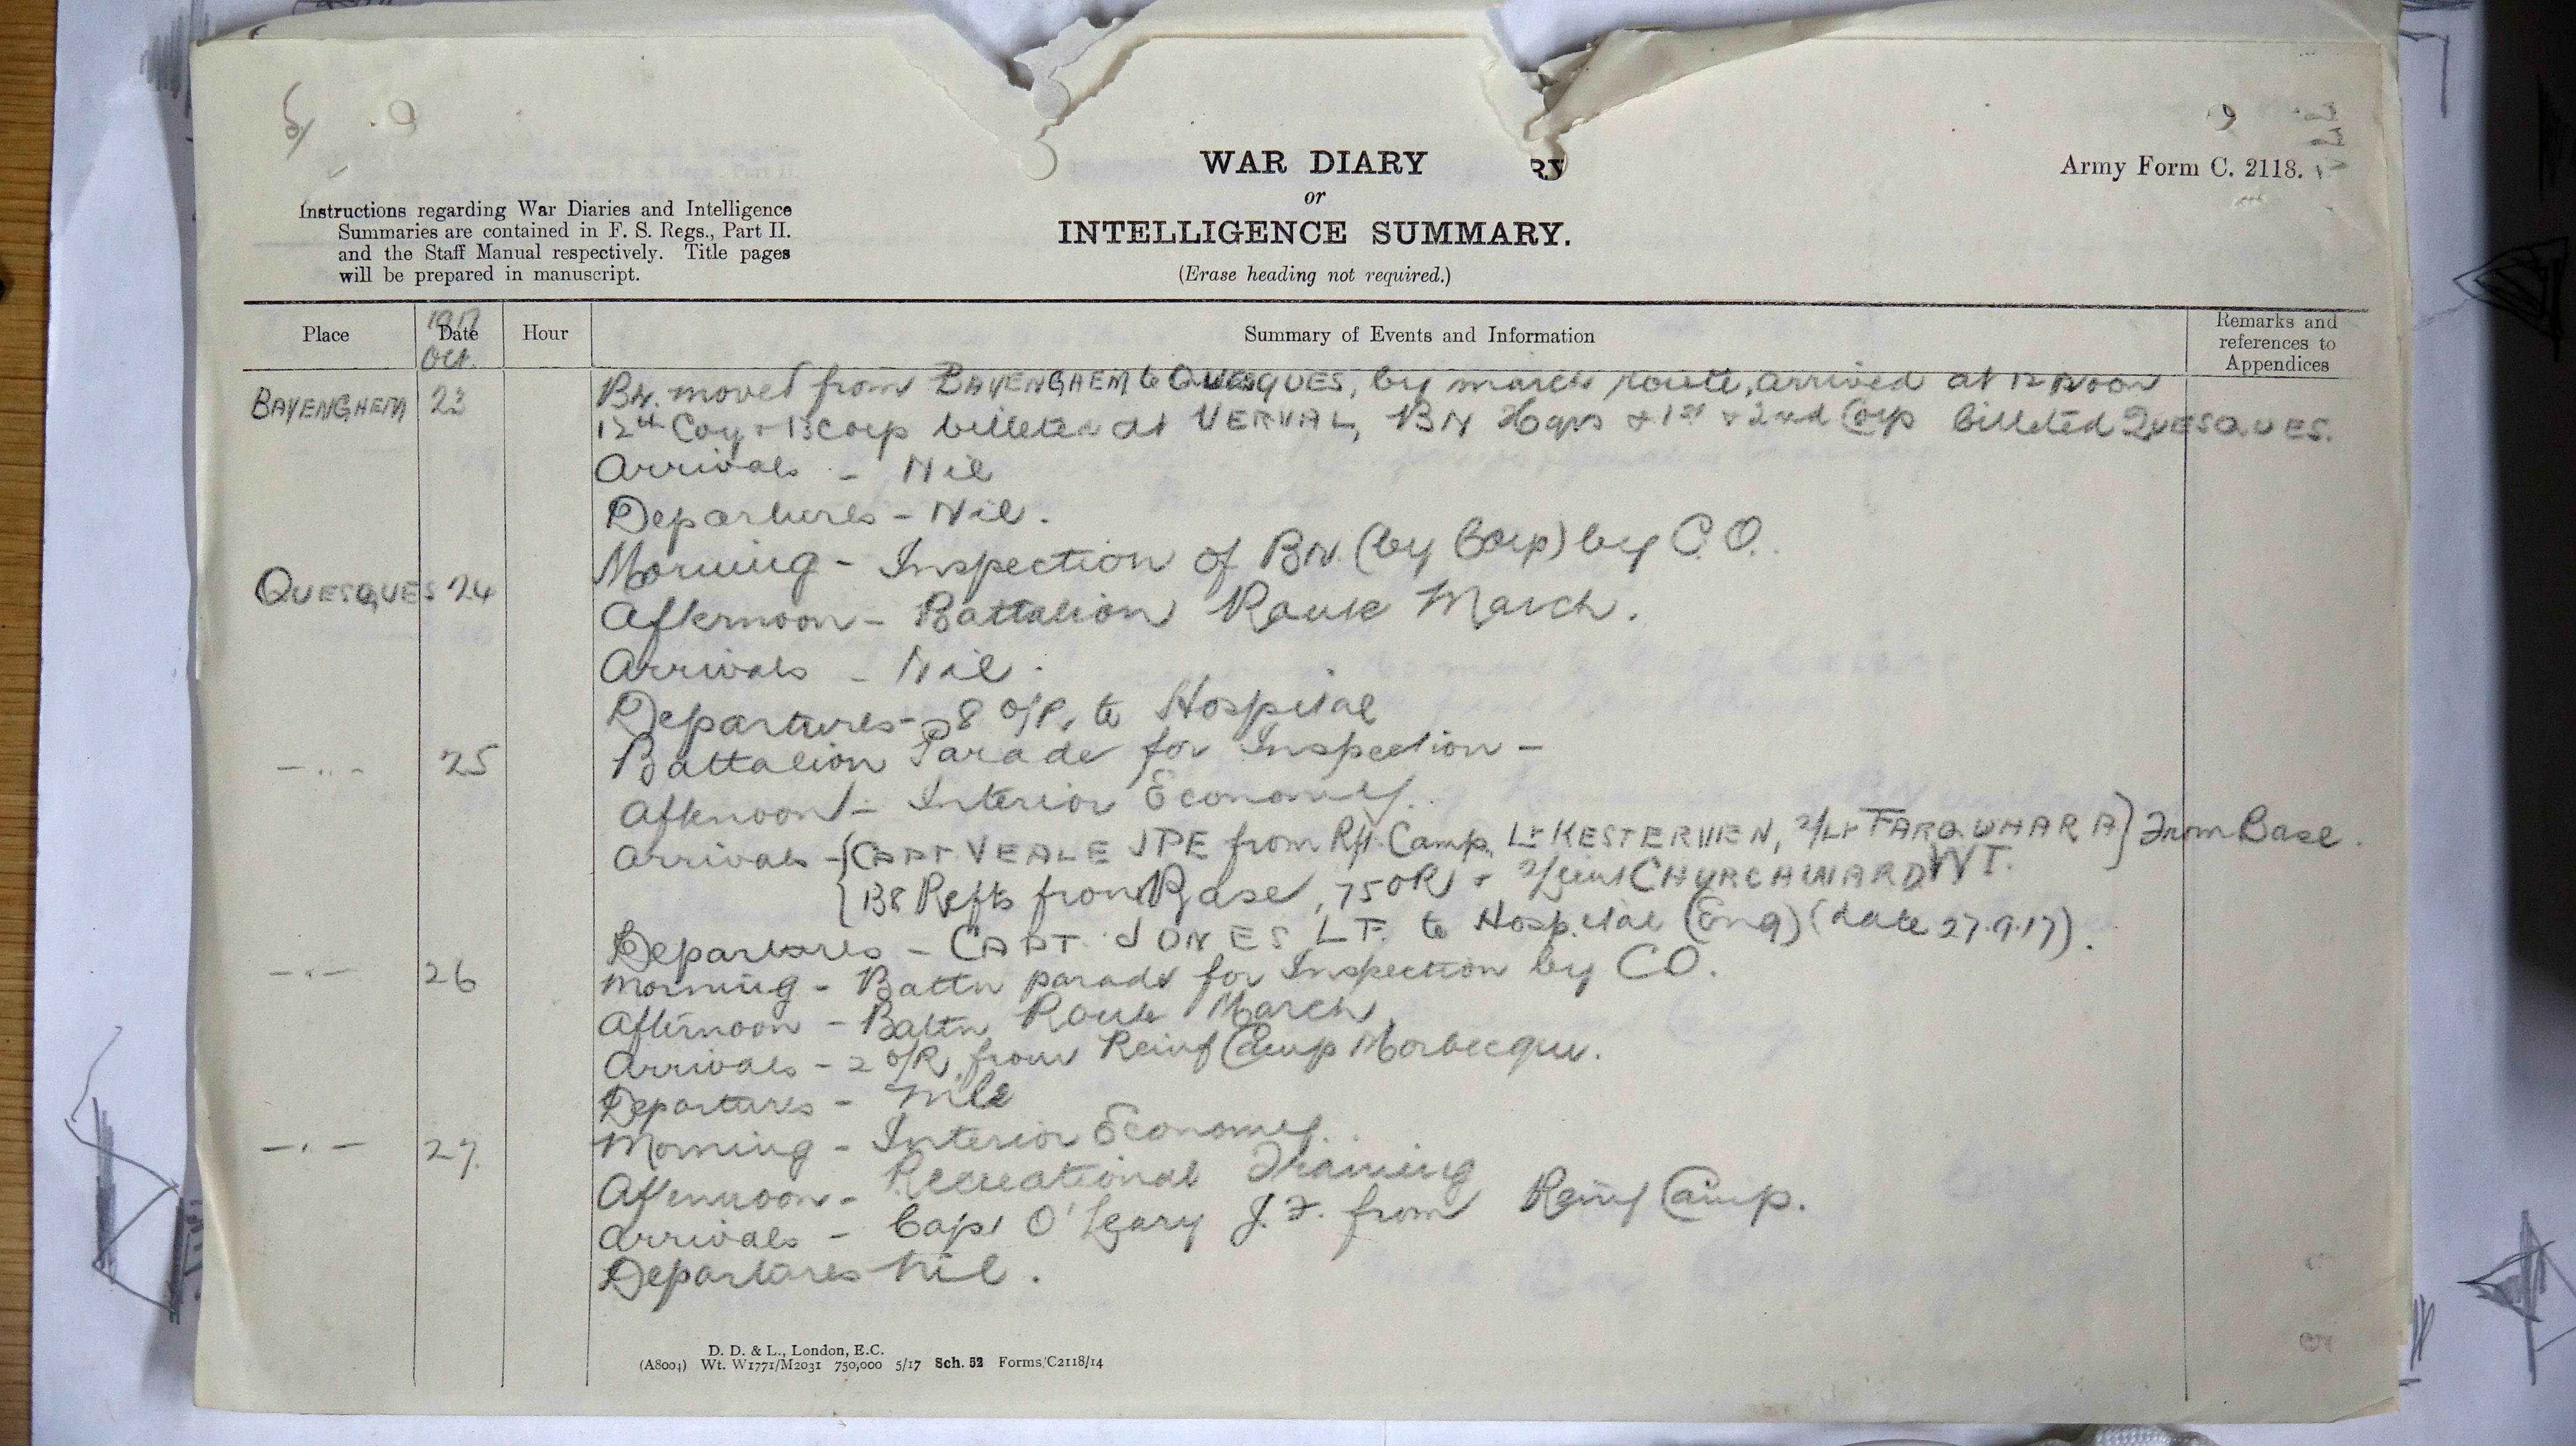 WAR DIARY RY
or
INTELLIGENCE SUMMARY.
(Erase heading not required.)
Army Form C. 2118.
Instructions regarding War Diaries and Intelligence
Summaries are contained in F. S. Regs., Part II.
and the Staff Manual respectively. Title pages
will be prepared in manuscript.
Place Date Hour Summary of Events and Information Remarks and references to Appendices
1917
Oct.
BAYENGHEM 23 Bn. moved from BAYENGHEM to QUESQUES, by march route, arrived at 12 Noon
12th Coy & 13 Coy billeted at VERVAL, BN Hqrs & 1st & 2nd Coys billeted QUESQUES.
Arrivals - Nil
Departures - Nil.
QUESQUES 24 Morning - Inspection of BN. (by Coys) by C.O.
Afternoon - Battalion Route March.
Arrivals - Nil.
Departures - 8 O/R. to Hospital
-..- 25 Battalion Parade for Inspection -
Afternoon - Interior Economy.
Arrivals - {CAPT. VEALE JPE from Rft. Camp, Lt KESTERVEN, 2/Lt FARQUHAR A} From Base.
{138 Refts from Base, 75 OR & 2/Lieut CHURCHWARD WT.
Departures - CAPT. JONES LF. to Hospital (Eng) (date 27.9.17).
-.- 26 Morning - Battn parade for Inspection by CO.
Afternoon - Battn Route March
Arrivals - 2 O/R. from Reinf Camp Morbecque.
Departures - Nil
-.- 27. Morning - Interior Economy.
Afternoon - Recreational Training
Arrivals - Capt O'Leary J.F. from Reinf Camp.
Departures Nil.
D. D. & L., London, E.C.
(A8004) Wt. W1771/M2031 750,000 5/17 Sch. 52 Forms/C2118/14